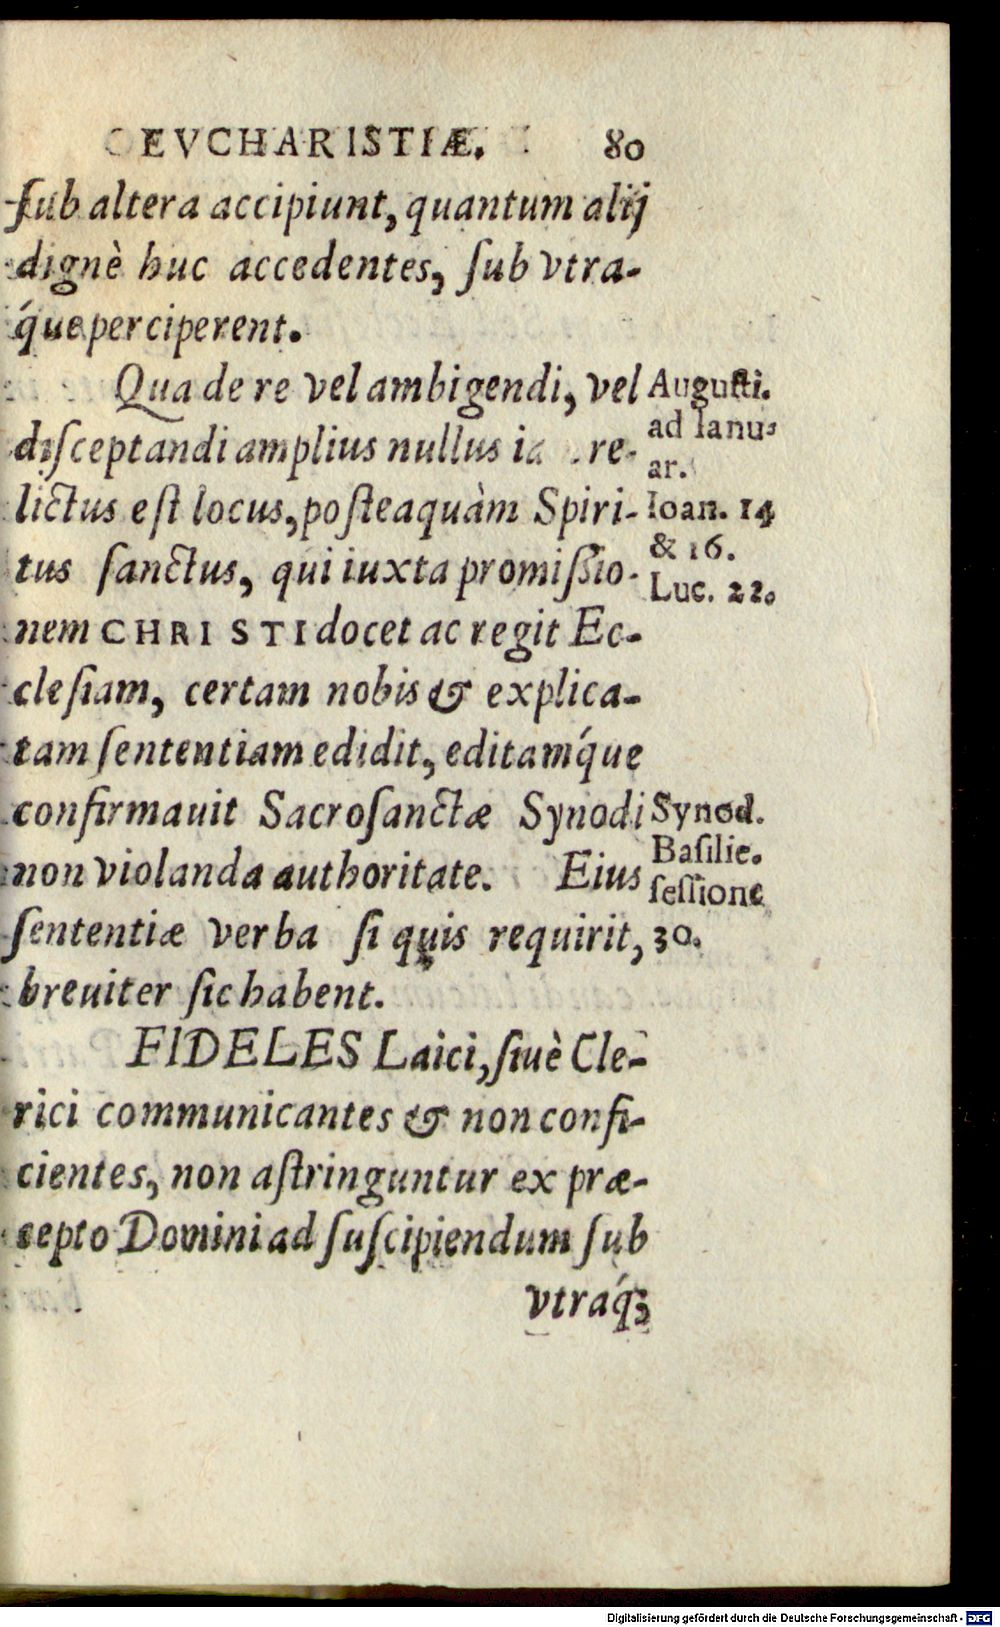 EVCHARISTIÆ. 80
ſub altera accipiunt, quantum alij
dignè huc accedentes, ſub vtra-
q́ue perciperent.
Qua de re vel ambigendi, vel
diſceptandi amplius nullus re-
lictus eſt locus, poſteaquàm Spiri-
tus ſanctus, qui iuxta promiſſio-
nem CHRISTI docet ac regit Ec-
cleſiam, certam nobis & explica-
tam ſententiam edidit, editamq́ue
confirmauit Sacroſanctæ Synodi
non violanda authoritate. Eius
ſententiæ verba ſi quis requirit,
breuiter ſic habent.
FIDELES Laici, ſiuè Cle-
rici communicantes & non confi-
cientes, non aſtringuntur ex præ-
cepto Domini ad ſuſcipiendum ſub
vtráq;
Auguſti.
ad Ianu-
ar.
Ioan. 14
& 16.
Luc. 22.
Synod.
Baſilie.
ſeſſione
30.
Digitalisierung gefördert durch die Deutsche Forschungsgemeinschaft - DFG